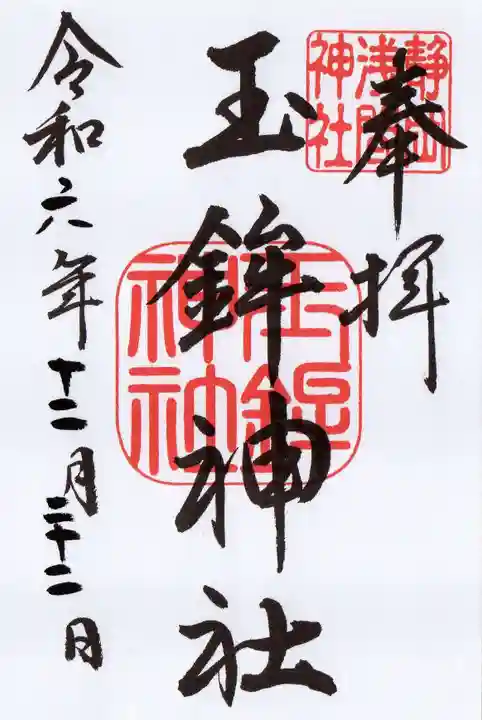 奉拝
静岡
浅間
神社
玉鉾神社
玉鉾
神社
令和六年十二月二十二日